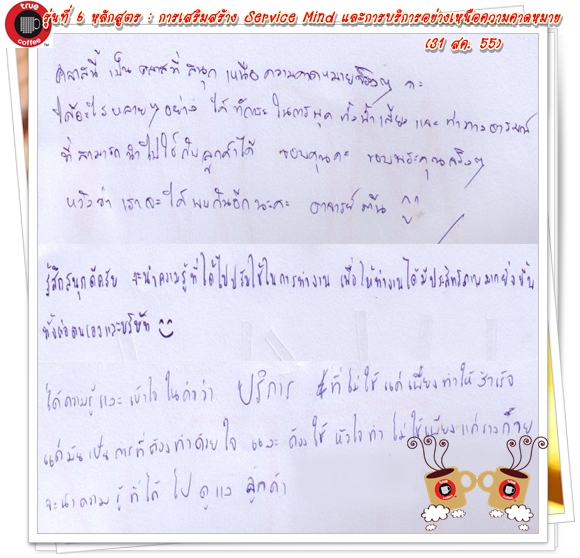 true coffee
รุ่นที่ 6 หลักสูตร : การเสริมสร้าง Service Mind และการบริการอย่างเหนือความคาดหมาย
(31 สค. 55)
คลาสนี้ เป็น คลาสที่ สนุก เหนือ ความคาดหมายจริงๆ คะ
ได้อะไรหลายๆ อย่าง ได้ ทักษะ ในการพูด ทั้งน้ำเสียง และ ท่าทางอารมณ์
ที่ สามารถ นำไปใช้ กับ ลูกค้าได้ ขอบคุณคะ ขอบพระคุณจริงๆ
หวังว่า เราจะได้ พบกันอีกนะคะ อาจารย์
รู้สึกสนุกดีครับ จะนำความรู้ที่ได้ไปปรับใช้ในการทำงาน เพื่อให้ทำงานได้มีประสิทธิภาพมากยิ่งขึ้น
ทั้งต่อตนเองและบริษัท
ได้ความรู้ และ เข้าใจ ในคำว่า บริการ ที่ไม่ใช้ แค่เพียงทำให้สำเร็จ
แต่มันเป็น การที่ต้องทำด้วยใจ และ ต้องใช้ หัวใจทำ ไม่ใช้เพียงแค่ร่างกาย
จะนำความ รู้ ที่ได้ ไป ดูแล ลูกค้า